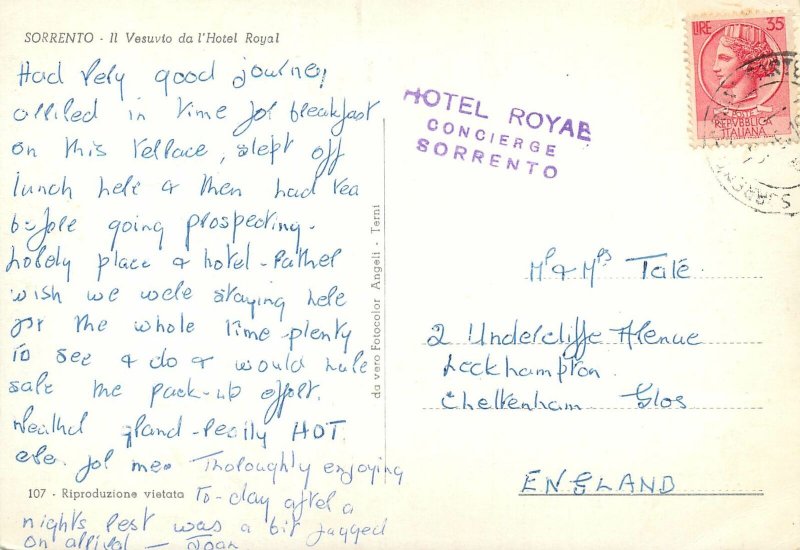 SORRENTO - Il Vesuvio da l'Hotel Royal
Had very good journey
arrived in time for breakfast
on this terrace, slept off
lunch here & then had tea
before going prospecting.
Lovely place & hotel - Rather
wish we were staying here
for the whole time plenty
to see & do & would have
save the pack-up effort.
Weather grand - really HOT
even for me. Thoroughly enjoying
107 - Riproduzione vietata
To-day after a
nights rest was a bit jagged
on arrival — Joan
da vero Fotocolor Angeli - Terni
HOTEL ROYAL
CONCIERGE
SORRENTO
LIRE 35
POSTE
REPVBBLICA
ITALIANA
Mr & Mrs Tate
2 Undercliffe Avenue
Leckhampton
Cheltenham Glos
ENGLAND